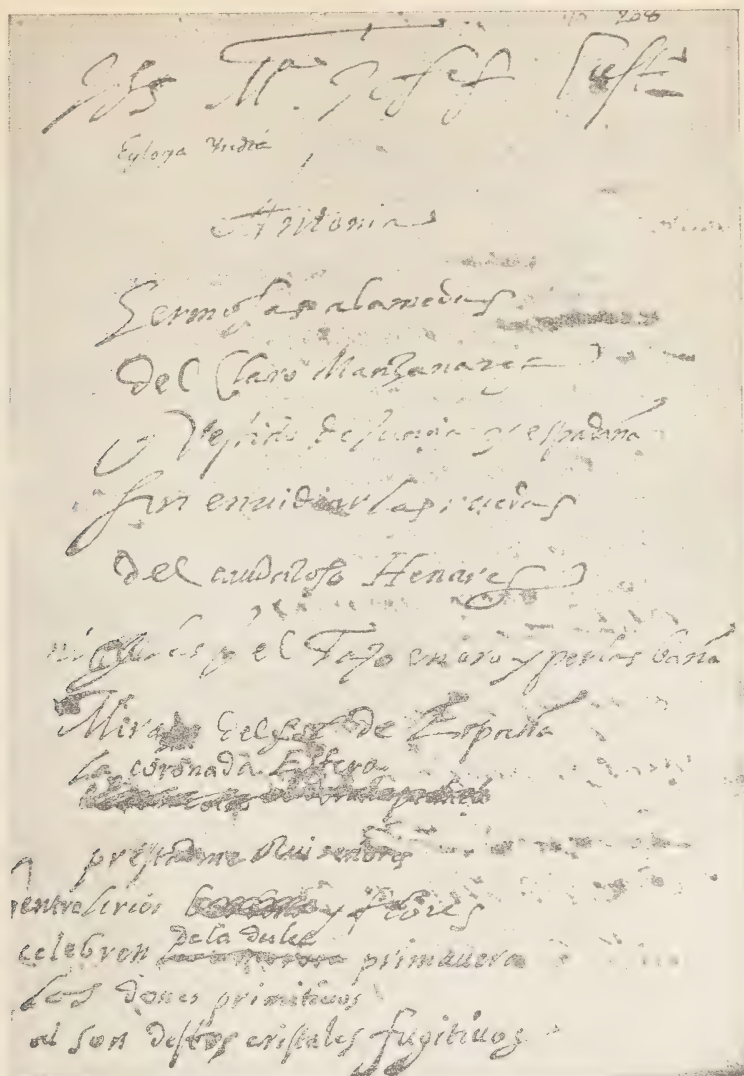 208
Jhs Mª Josef Cust
Egloga
Antonia
Hermosas alamedas
del Claro Manzanares
Vestido de juncia y espadaña
sin enuidiar las ruedas
del caudaloso Henares
el Tajo en oro y perlas baña
Mirad del sol de España
la coronada Esfera
prestadme Ruiseñores
entre lirios y flores
celebren de la dulce primauera
los dones primitiuos
al son destos cristales fugitiuos